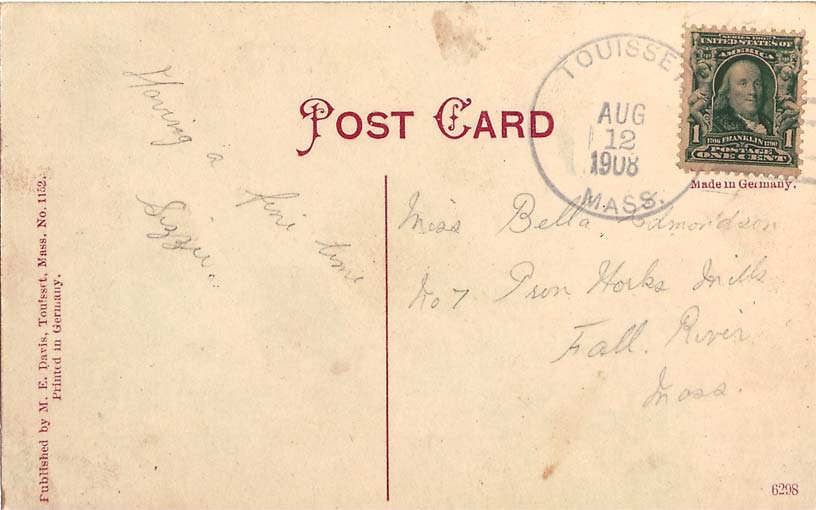 POST CARD
TOUISSET
AUG
12
1908
MASS.
SERIES 1902
UNITED STATES OF
AMERICA
1 1
1706 FRANKLIN 1790
POSTAGE
ONE CENT
Made in Germany.
Having a fine time
Lizzie
Miss Bella Edmondson
No 7 Iron Works Mills
Fall River
Mass.
Published by M. E. Davis, Touisset, Mass. No. 1152.
Printed in Germany.
6298